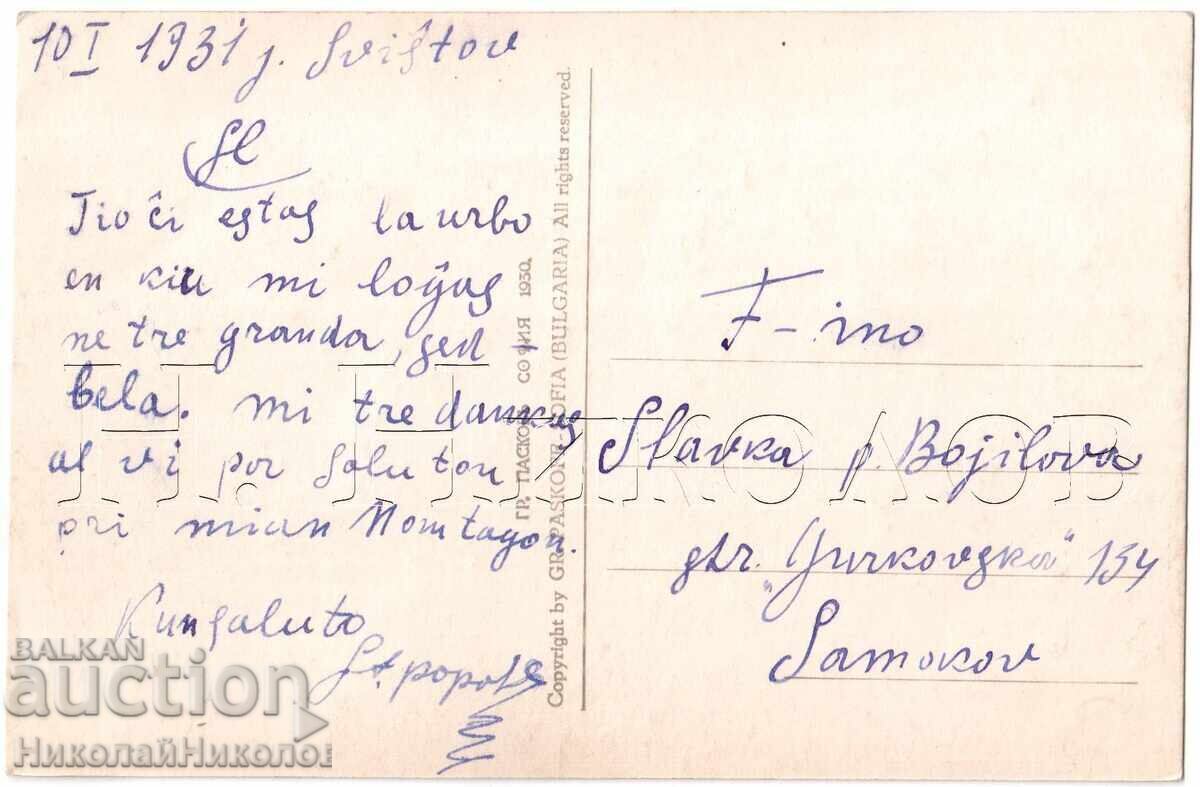 10 I 1931 g. Sviŝtov
Sl
Tio ĉi estas la urbo
en kiu mi loĝas
ne tre granda, sed -
bela. mi tre dankas
al vi por saluton
pri mian Nomtagon.
Kun saluto
St. popov
F-ino
Slavka p. Bojilova
str. „Gurkovska" 154
Samokov
ГР. ПАСКОВЪ СОФИЯ 1930.
Copyright by GR. PASKOFF SOFIA (BULGARIA) All rights reserved.
Н. НИКОЛОВ
BALKAN
auction
НиколайНиколов